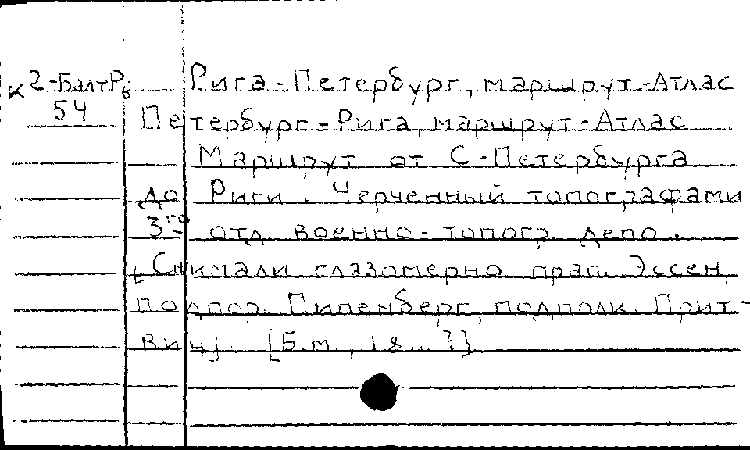 К 2-БалтРб Рига-Петербург, маршрут-Атлас
54 Петербург-Рига, маршрут-Атлас
Маршрут от С-Петербурга
до Риги. Черченный топографами
3го отд. военно-топогр. депо.
[Снимали глазомерно прап. Эссен,
подпор. Пиленберг, подполк. Прит-
виц]. [Б.м., 18..?]